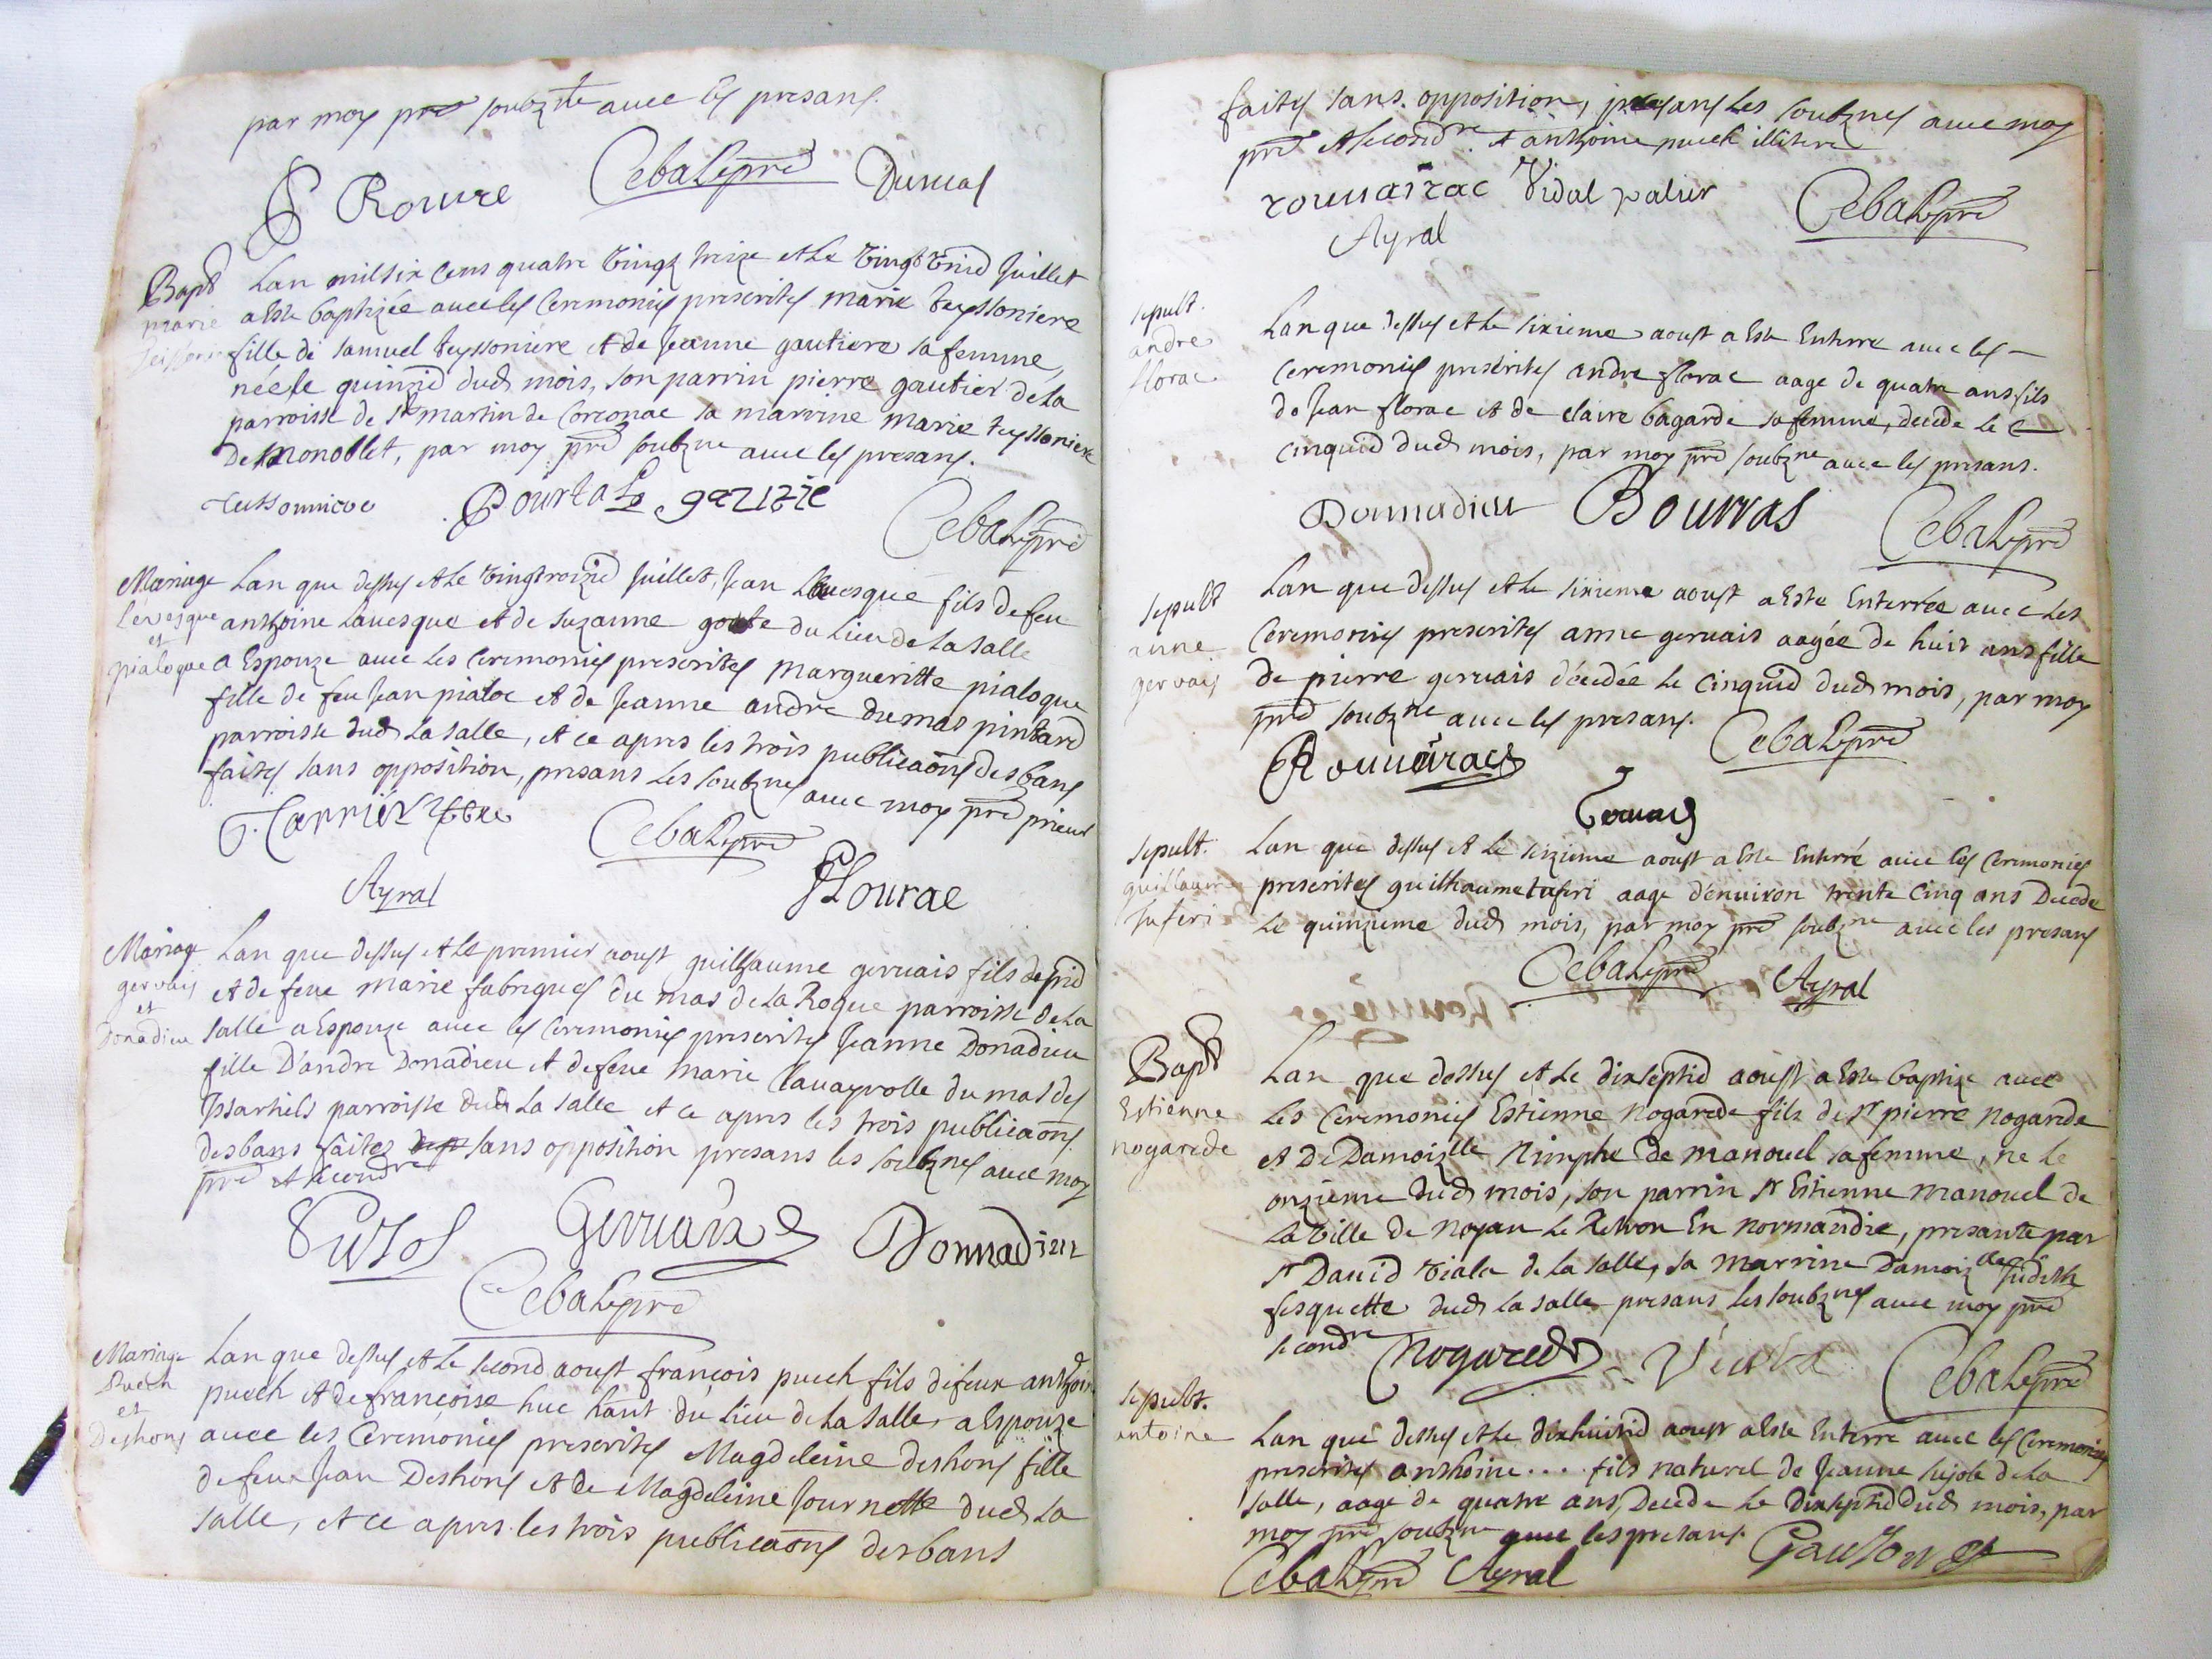 par moy pre soubzne avec les presans.
Rouvre Cebalepre Durual
Bapt Lan mil six cens quatre vingt treize et le vingt unie Juillet
marie a Este baptizée avec les Ceremonies prescrites marie teyssoniere
fille de samuel teyssoniere et de Jeanne gautiere sa femme,
née le quinzie dud mois, son parrin pierre gautier de La
parroisse de st martin de Corconac sa marrine marie teyssoniere
De Monoblet, par moy pre soubzne avec les presans.
Pourtal gauzie
Cebalepre
Mariage Lan que dessus et Le vingtroizie Juillet, Jean Lauesque fils de feu
Lévesque anthoine Lauesque et de suzanne goute du Lieu de La salle
et
pialoque a Espouze avec Les Ceremonies prescrites margueritte pialoque
fille de feu Jean pialoc et de Jeanne andre du mas pintard
parroisse dud La salle, et ce apres les trois publicaons des bans
faites sans opposition, presans Les soubznes avec moy pre prieur
Cebalepre
Ayral Flourac
Mariage Lan que dessus et le premier aoust guilhaume gervais fils de
gervais et de feue marie fabrigues du mas de La Roque parroisse de La
et
Donadieu salle a Espouze avec les Ceremonies prescrites Jeanne Donadieu
fille D'andre Donadieu et de feue marie Clauayrolle du mas des
Issartiels parroisse dud La salle et ce apres les trois publicaons
des bans faites sans opposition presans les soubznes avec moy
pre et secondre
Puzos Gervais Donnadieu
Cebalepre
Mariage Lan que dessus et Le second aoust françois puech fils de feu anthoine
Puech puech et de françoise huc hant du Lieu de La salle, a Espouze
et
Deshons avec les Ceremonies prescrites Magdeleine deshons fille
de feu Jean Deshons et de Magdeleine Journette dud La
salle, et ce apres les trois publicaons des bans
faites sans opposition, presans Les soubznes avec moy
pre et secondre et anthoine puech illitere
roumairac Vidal valier Cebalepre
Ayral
sepult. Lan que dessus et Le sixieme aoust a Este Enterre avec les
andre Ceremonies prescrites andre florac aage de quatre ans fils
florac de Jean florac et de claire bagarde sa femme, decede Le
cinquie dud mois, par moy pre soubzne avec les presans.
Donnadieu Bourras Cebalepre
sepult Lan que dessus et Le sixieme aoust a Este Enterrée avec Les
anne Ceremonies prescrites anne gervais aagée de huit ans fille
gervais de pierre gervais décédée Le Cinquie dud mois, par moy
pre soubzne avec les presans. Cebalepre
Roumairac
Gervais
sepult. Lan que dessus et Le sezieme aoust a Este Enterré avec les Ceremonies
guillaume prescrites guilhaume tuferi aage d'environ trente Cinq ans Decede
tuferi Le quinzieme dud mois, par moy pre soubzne avec les presans
Cebalepre Ayral
Bapt Lan que dessus et Le dixseptie aoust a Este baptize avec
Estienne Les Ceremonies Estienne nogarede fils de sr pierre nogarede
nogarede et De Damoizlle Nimphe de manouel sa femme, ne le
onzieme dud mois, son parrin sr Estienne manouel de
La ville de Nojan Le Retron En Normandie, presante par
sr David viala de La salle, sa marrine Damoizlle Judith
fesquette dud La salle presans Les soubznes avec moy pre
secondre Nogarede Viala Cebalepre
sepult. Lan que dessus et Le dixhuitie aoust a Este Enterre avec les Ceremonies
antoine prescrites anthoine.... fils naturel de Jeanne sujole de La
salle, aage de quatre ans, Decede Le dixseptie dud mois, par
moy pre soubzne avec les presans.
Cebalepre Ayral